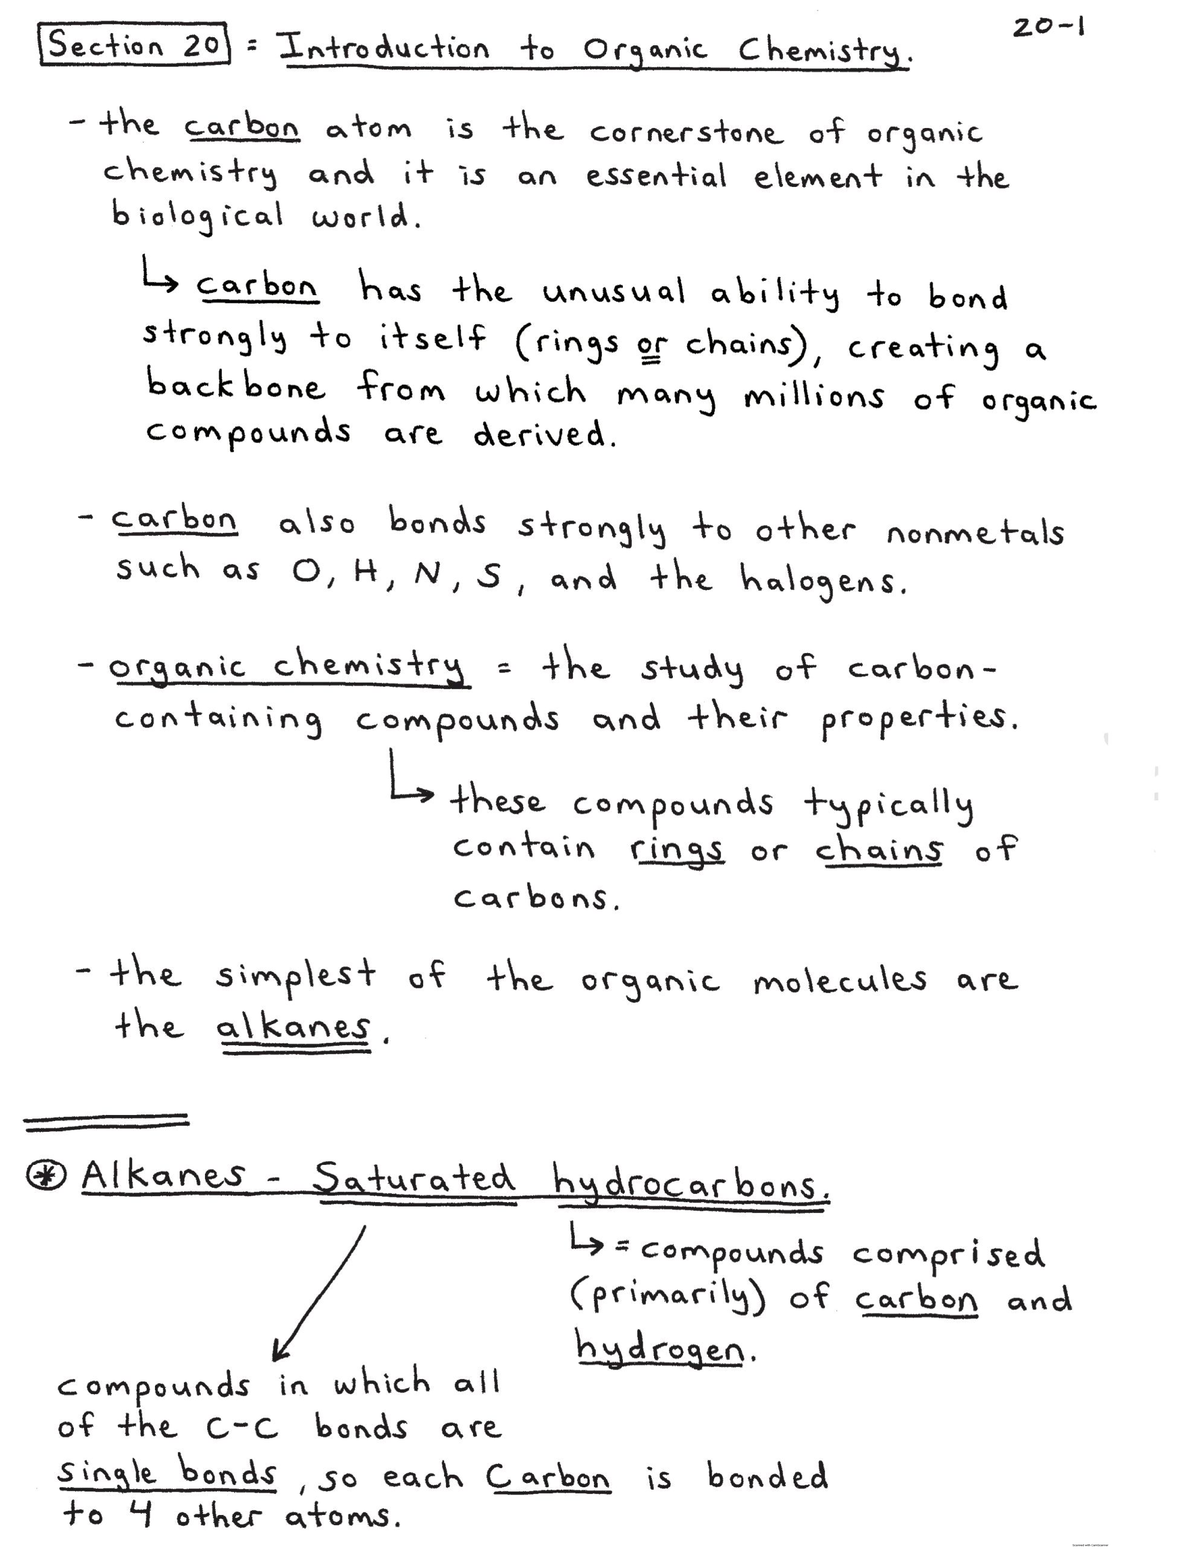 20-1
Section 20 = Introduction to Organic Chemistry.
- the carbon atom is the cornerstone of organic
chemistry and it is an essential element in the
biological world.
↳ carbon has the unusual ability to bond
strongly to itself (rings or chains), creating a
backbone from which many millions of organic
compounds are derived.
- carbon also bonds strongly to other nonmetals
such as O, H, N, S, and the halogens.
- organic chemistry = the study of carbon-
containing compounds and their properties.
↳ these compounds typically
contain rings or chains of
carbons.
- the simplest of the organic molecules are
the alkanes.
* Alkanes - Saturated hydrocarbons.
↳ = compounds comprised
(primarily) of carbon and
hydrogen.
compounds in which all
of the C-C bonds are
single bonds, so each Carbon is bonded
to 4 other atoms.